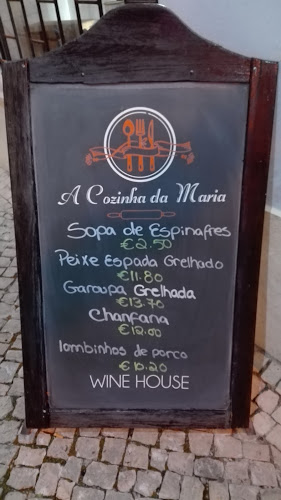 A Cozinha da Maria
Sopa de Espinafres
€2.50
Peixe Espada Grelhado
€11.80
Garoupa Grelhada
€13.70
Chanfana
€12.00
lombinhos de porco
€10.20
WINE HOUSE